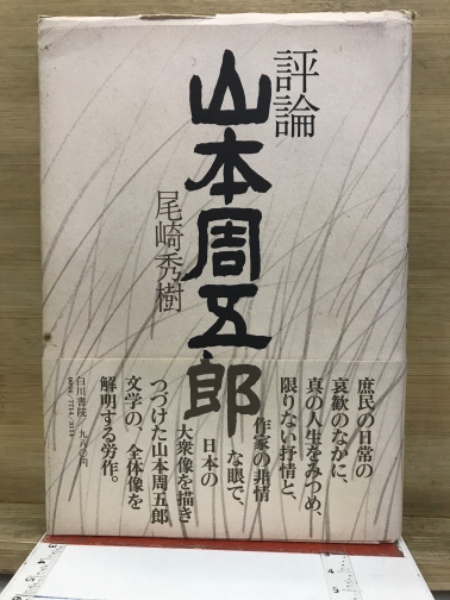 評論
山本周五郎
尾崎秀樹
庶民の日常の
哀歓のなかに、
真の人生をみつめ、
限りない抒情と、
作家の非情
な眼で、
日本の
大衆像を描き
つづけた山本周五郎
文学の、全体像を
解明する労作。
白川書院/九八〇円